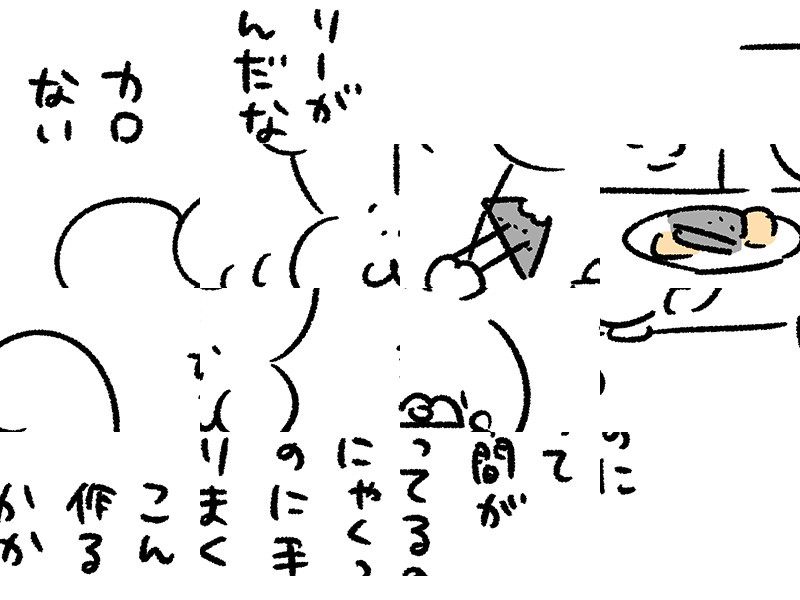 リーが
んだな
カロ
ない
に
て
間が
ってる
にゃく
のに手
りまく
こん
作る
かか